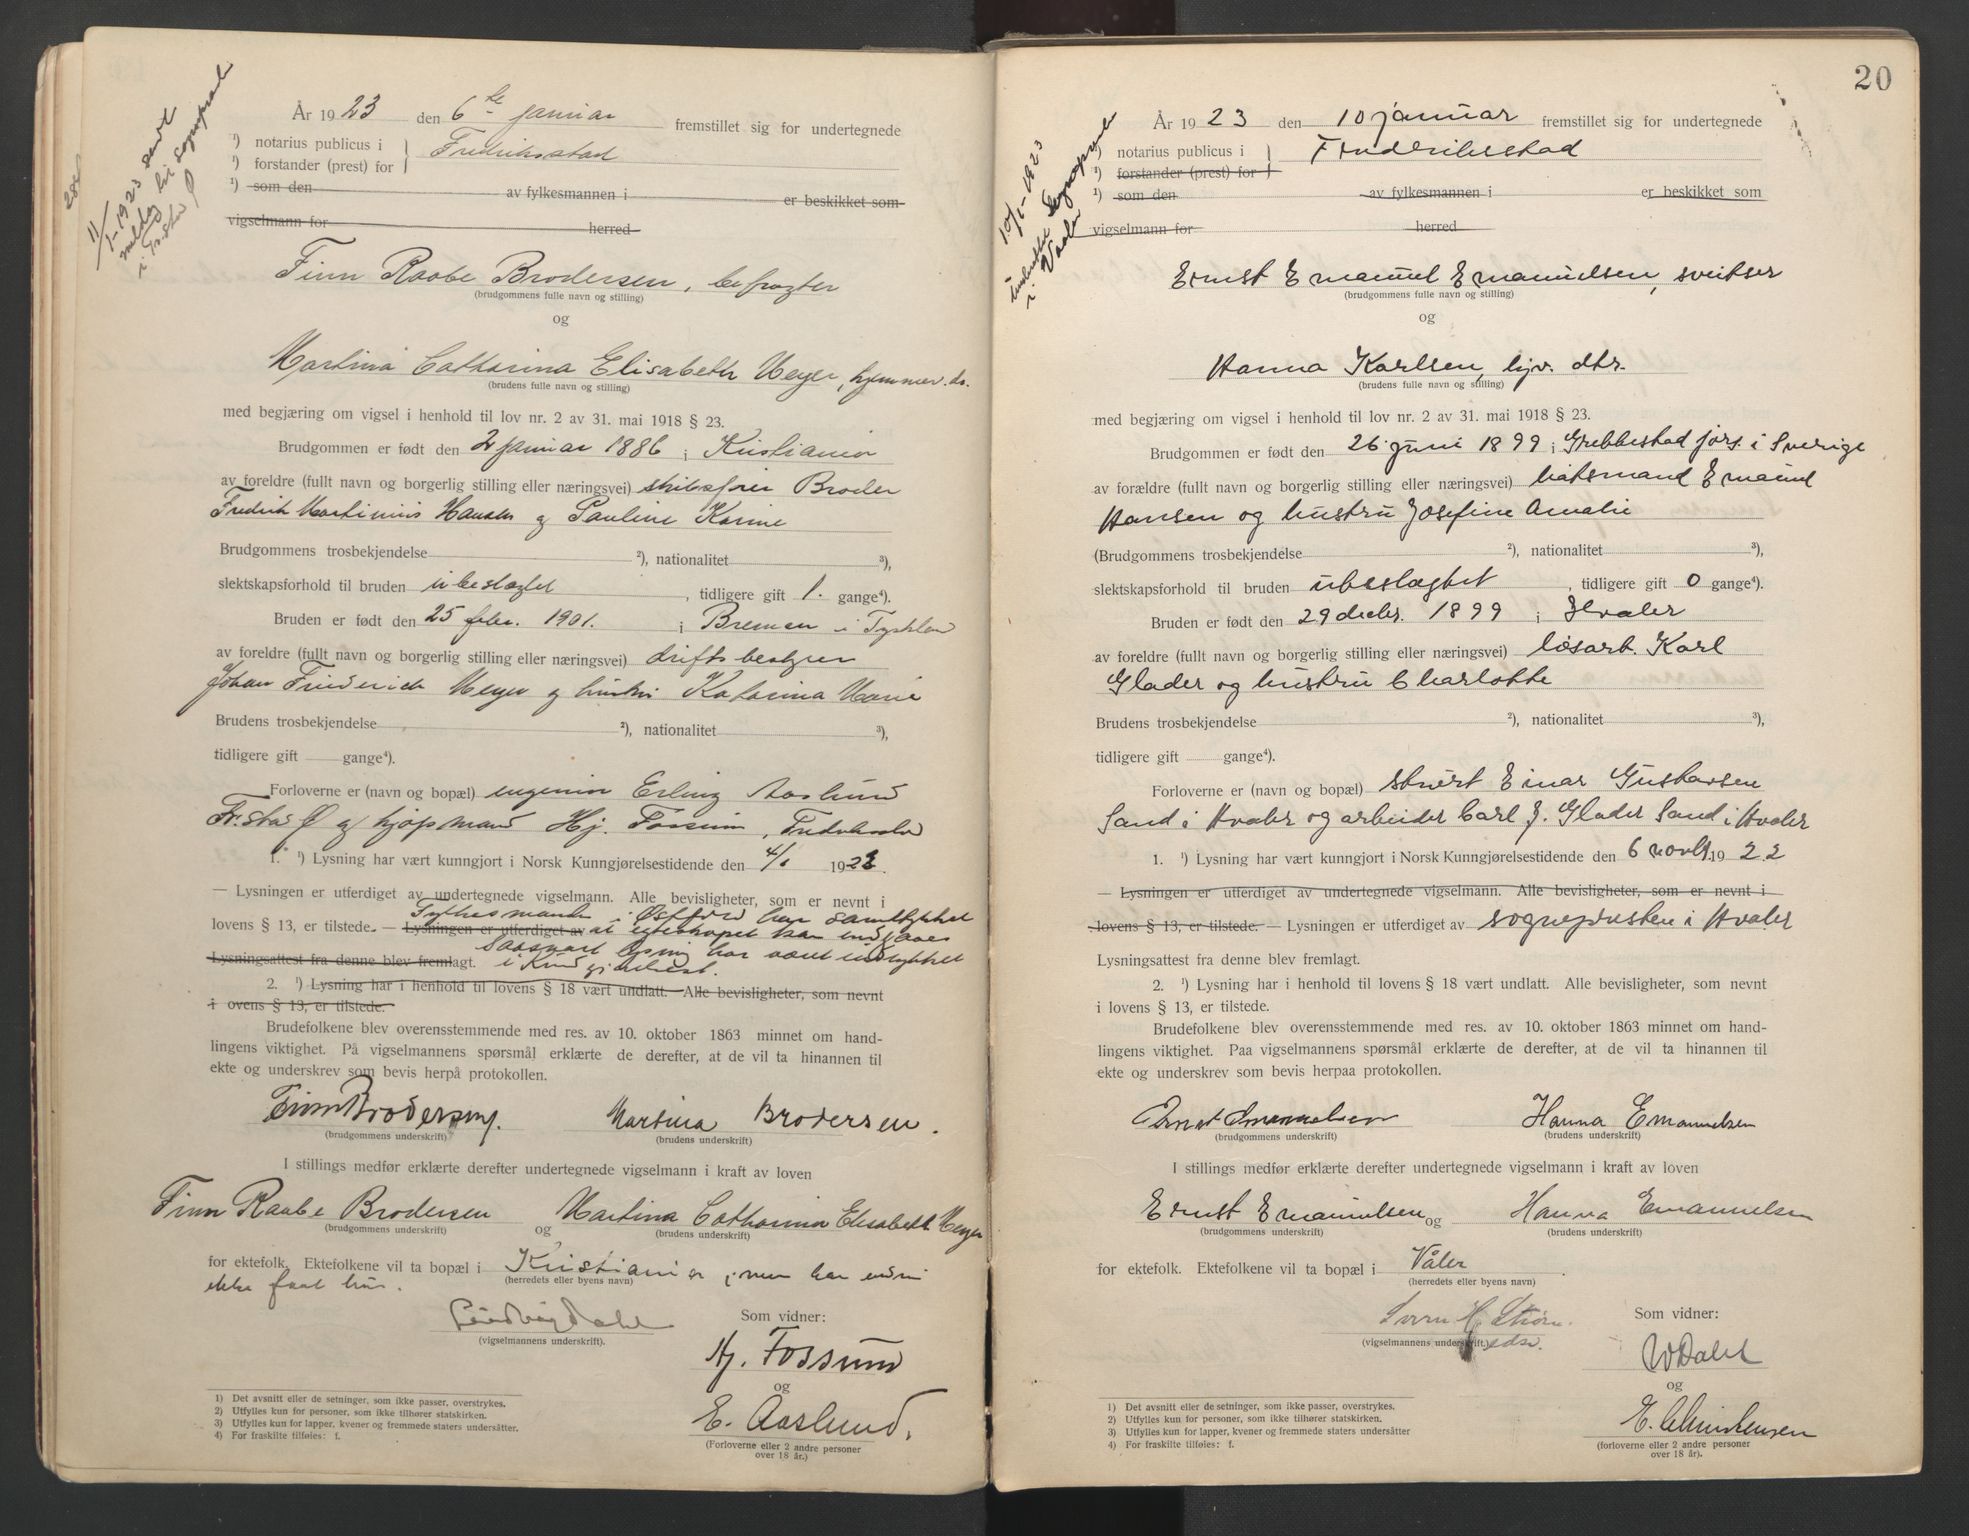 11/1-1923 sendt
melding til sogneprest
i Fr.stad
År 1923 den 6te januar fremstillet sig for undertegnede
¹) notarius publicus i } Fredriksstad
¹) forstander (prest) for
¹) som den av fylkesmannen i er beskikket som
vigselmann for herred
Finn Raabe Brodersen, befragter
(brudgommens fulle navn og stilling)
og
Martina Catharina Elisabeth Meyer, hjemmev. dr.
(brudens fulle navn og stilling)
med begjæring om vigsel i henhold til lov nr. 2 av 31. mai 1918 § 23.
Brudgommen er født den 2 januar 1886 i Kristiania
av foreldre (fullt navn og borgerlig stilling eller næringsvei) skibsfører Broder
Fredrik Martinius Hansen og Pauline Karine
Brudgommens trosbekjendelse ²), nationalitet ³),
slektskapsforhold til bruden ubeslægtet, tidligere gift 1. gange⁴).
Bruden er født den 25 febr. 1901. i Bremen i Tyskland
av foreldre (fullt navn og borgerlig stilling eller næringsvei) driftsbestyrer
Johan Friederich Meyer og hustru Katarina Marie
Brudens trosbekjendelse ²), nationalitet ³),
tidligere gift gange⁴).
Forloverne er (navn og bopæl) ingeniør Erling Aaslund
Fr.stad og kjøpmand Hj. Fossum, Fredriksstad
1. ¹) Lysning har vært kunngjort i Norsk Kunngjørelsestidende den 4/1 1923.
— Lysningen er utferdiget av undertegnede vigselmann. Alle bevisligheter, som er nevnt i
lovens § 13, er tilstede. — Lysningen er utferdiget av Fylkesmanden i Østfold har samtykket
at egteskapet kan indgaaes
Lysningsattest fra denne blev fremlagt. saasnart lysning har været indrykket
i Kundgjørelsest.
2. ¹) Lysning har i henhold til lovens § 18 vært undlatt. Alle bevisligheter, som nevnt
i ovens § 13, er tilstede.
Brudefolkene blev overensstemmende med res. av 10. oktober 1863 minnet om hand-
lingens viktighet. På vigselmannens spørsmål erklærte de derefter, at de vil ta hinannen til
ekte og underskrev som bevis herpå protokollen.
Finn Brodersen. Martina Brodersen.
(brudgommens underskrift) (brudens underskrift)
I stillings medfør erklærte derefter undertegnede vigselmann i kraft av loven
Finn Raabe Brodersen og Martina Catharina Elisabeth Meyer
(brudgommens underskrift) (brudens underskrift)
for ektefolk. Ektefolkene vil ta bopæl i Kristiania, men har endnu
(herredets eller byens navn)
ikke faat hus.
(vigselmannens underskrift).
Som vidner:
Hj. Fossum
og
E. Aaslund.
(Forloverne eller 2 andre personer
over 18 år.)
1) Det avsnitt eller de setninger, som ikke passer, overstrykes.
2) Utfylles kun for personer, som ikke tilhører statskirken.
3) Utfylles kun for lapper, kvener og fremmede staters undersåtter.
4) For fraskilte tilføies: f.
20
10/1-1923
underrettet Sogneprest
i Vaaler
År 1923 den 10 januar fremstillet sig for undertegnede
¹) notarius publicus i } Fredriksstad
¹) forstander (prest) for
¹) som den av fylkesmannen i er beskikket som
vigselmann for herred
Ernst Emanuel Emanuelsen, sveitser
(brudgommens fulle navn og stilling)
og
Hanna Karlsen, hjv. dtr.
(brudens fulle navn og stilling)
med begjæring om vigsel i henhold til lov nr. 2 av 31. mai 1918 § 23.
Brudgommen er født den 26 juni 1899 i Grebbestad førs. i Sverige
av forældre (fullt navn og borgerlig stilling eller næringsvei) baatsmand Emanuel
Hansen og hustru Josefine Amalie
(Brudgommens trosbekjendelse ²), nationalitet ³),
slektskapsforhold til bruden ubeslægtet, tidligere gift 0 gange⁴).
Bruden er født den 29 decbr. 1899 i Hvaler
av foreldre (fullt navn og borgerlig stilling eller næringsvei) løsarb. Karl
Glader og hustru Charlotte
Brudens trosbekjendelse ²), nationalitet ³),
tidligere gift gange⁴).
Forloverne er (navn og bopæl) Einar Gustavsen
Sand i Hvaler og arbeider Carl J. Glader Sand i Hvaler
1. ¹) Lysning har vært kunngjort i Norsk Kunngjørelsestidende den 6 novbr. 1922
— Lysningen er utferdiget av undertegnede vigselmann. Alle bevisligheter, som er nevnt i
lovens § 13, er tilstede. — Lysningen er utferdiget av sognepresten i Hvaler
Lysningsattest fra denne blev fremlagt.
2. ¹) Lysning har i henhold til lovens § 18 vært undlatt. Alle bevisligheter, som nevnt
i lovens § 13, er tilstede.
Brudefolkene blev overensstemmende med res. av 10. oktober 1863 minnet om hand-
lingens viktighet. Paa vigselmannens spørsmål erklærte de derefter, at de vil ta hinannen til
ekte og underskrev som bevis herpaa protokollen.
Ernst Emanuelsen Hanna Emanuelsen
(brudgommens underskrift) (brudens underskrift)
I stillings medfør erklærte derefter undertegnede vigselmann i kraft av loven
Ernst Emanuelsen og Hanna Emanuelsen
(brudgommens underskrift) (brudens underskrift)
for ektefolk. Ektefolkene vil ta bopæl i Våler
(herredets eller byens navn)
(vigselmannens underskrift) edsv.
Som vidner:
W Dahl
og
E. Christensen
(forloverne eller 2 andre personer
over 18 år).
1) Det avsnitt eller de setninger, som ikke passer, overstrykes.
2) Utfylles kun for personer, som ikke tilhører statskirken.
3) Utfylles kun for lapper, kvener og fremmede staters undersåtter
4) For fraskilte tilføies: f.